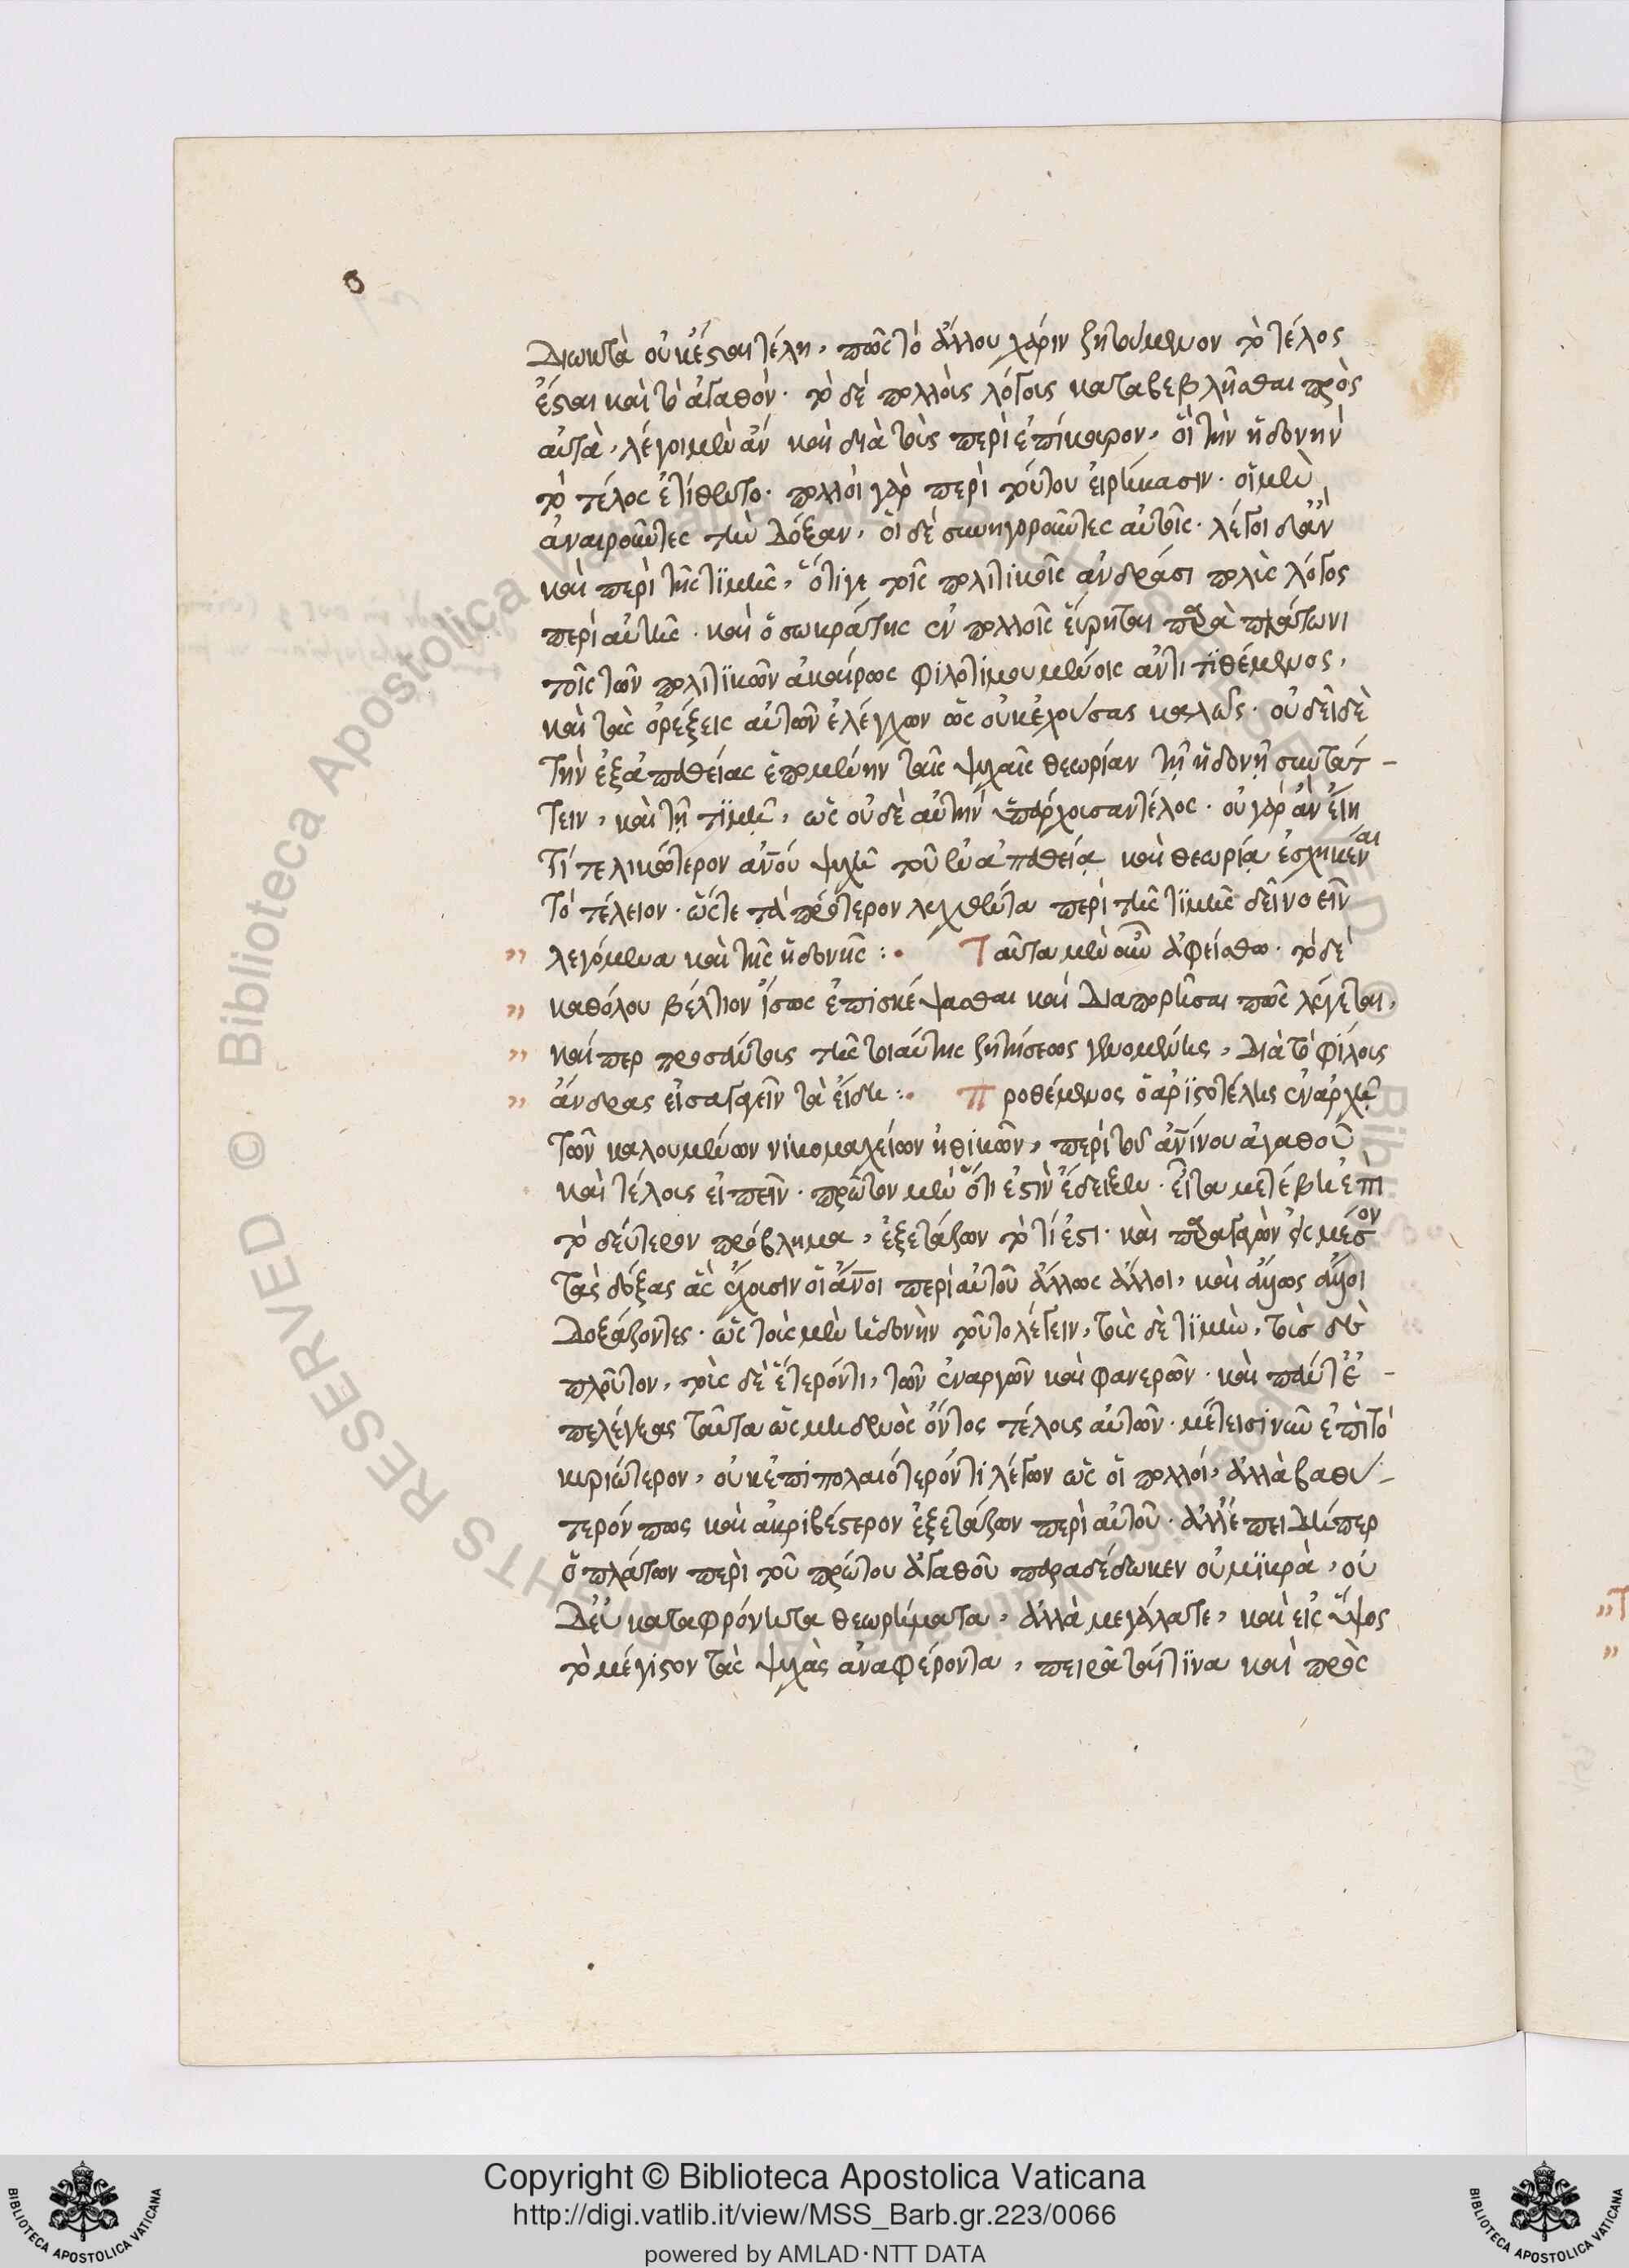 διωκτὰ οὐκ ἔσται τέλη, πῶς τὸ ἄλλου χάριν ζητούμενον τὸ τέλος
ἔσται καὶ τὸ ἀγαθόν. τὸ δὲ πολλοὺς λόγους καταβεβλῆσθαι πρὸς
αὐτὰ, λέγοι μὲν ἂν καὶ διὰ τοὺς περὶ ἐπίκουρον, οἳ τὴν ἡδονὴν
τὸ τέλος ἐτίθεντο. πολλοὶ γὰρ περὶ τούτου εἰρήκασιν. οἱ μὲν
ἀναιροῦντες τὴν δόξαν, οἱ δὲ συνηγοροῦντες αὐτοῖς. λέγοι δ' ἂν
καὶ περὶ τῆς τϊμῆς, ὅτι γε τοῖς πολιτικοῖς ἀνδράσι πολὺς λόγος
περὶ αὐτῆς. καὶ ὁ σωκράτης ἐν πολλοῖς εἴρηται παρὰ πλάτωνι
τοῖς τῶν πολιτϊκῶν ἀκαίρως φιλοτιμουμένοις ἀντιτϊθέμενος,
καὶ τὰς ὀρέξεις αὐτῶν ἐλέγχων ὡς οὐκ ἐχούσας καλῶς. οὐ δεῖ δὲ
τὴν ἐξ ἀπαθείας ἑπομένην ταῖς ψυχαῖς θεωρίαν τῇ ἡδονῇ συντάτ-
τειν, καὶ τῇ τϊμῇ, ὡς οὐδὲ αὐτὴν ὑπάρχουσαν τέλος. οὐ γὰρ ἂν εἴη
τί τελικώτερον ἀνου ψυχῆ τοῦ ἐν ἀπαθείᾳ καὶ θεωρίᾳ ἐσχηκέναι
τὸ τέλειον. ὥστε τὰ πρότερον λεχθέντα περὶ τῆς τϊμῆς δεῖ νοεῖν
λεγόμενα καὶ τῆς ἡδονῆς :. Ταῦτα μὲν οὖν ἀφείσθω. τὸ δὲ
καθόλου βέλτιον ἴσως ἐπισκέψασθαι καὶ διαπορῆσαι πῶς λέγεται,
καίπερ προσάντους τῆς τοιαύτης ζητήσεως γενομένης, διὰ τὸ φίλους
ἄνδρας εἰσαγαγεῖν τὰ εἴδη :. Προθέμενος ὁ ἀρϊστοτέλης ἐν ἀρχῇ
τῶν καλουμένων νικομαχείων ἠθικῶν, περὶ τοῦ ἀνίνου ἀγαθοῦ
καὶ τέλους εἰπεῖν. πρῶτον μὲν ὅτι ἐστὶν ἔδειξεν. εἶτα μετέβη ἐπὶ
τὸ δεύτερον πρόβλημα, ἐξετάζων τὸ τί ἐστι. καὶ παραγαγὼν εἰς μέσον
τὰς δόξας ἃς ἔχουσιν οἱ ἄνοι περὶ αὐτοῦ ἄλλως ἄλλοι, καὶ ἄλλως ἄλλοι
δοξάζοντες. ὡς τοὺς μὲν ἡδονὴν τοῦτο λέγειν, τοὺς δὲ τϊμὴν, τοὺς δὲ
πλοῦτον, τοὺς δὲ ἕτερόν τι, τῶν ἐναργῶν καὶ φανερῶν. καὶ πάντ' ἐ-
πελέγξας ταῦτα ὡς μηδενὸς ὄντος τέλους αὐτῶν. μέτεισιν οὖν ἐπὶ τὸ
κυριώτερον, οὐκ ἐπιπολαιότερόν τι λέγων ὡς οἱ πολλοί, ἀλλὰ βαθύ-
τερόν πως καὶ ἀκριβέστερον ἐξετάζων περὶ αὐτοῦ. ἀλλ' ἐπειδήπερ
ὁ πλάτων περὶ τοῦ πρώτου ἀγαθοῦ παραδέδωκεν οὐ μϊκρὰ, οὐ
δ' εὐκαταφρόνητα θεωρήματα, ἀλλὰ μεγάλα τε, καὶ εἰς ὕψος
τὸ μέγιστον τὰς ψυχὰς ἀναφέροντα, πειρᾶται τϊνα καὶ πρὸς
Copyright © Biblioteca Apostolica Vaticana
http://digi.vatlib.it/view/MSS_Barb.gr.223/0066
powered by AMLAD·NTT DATA